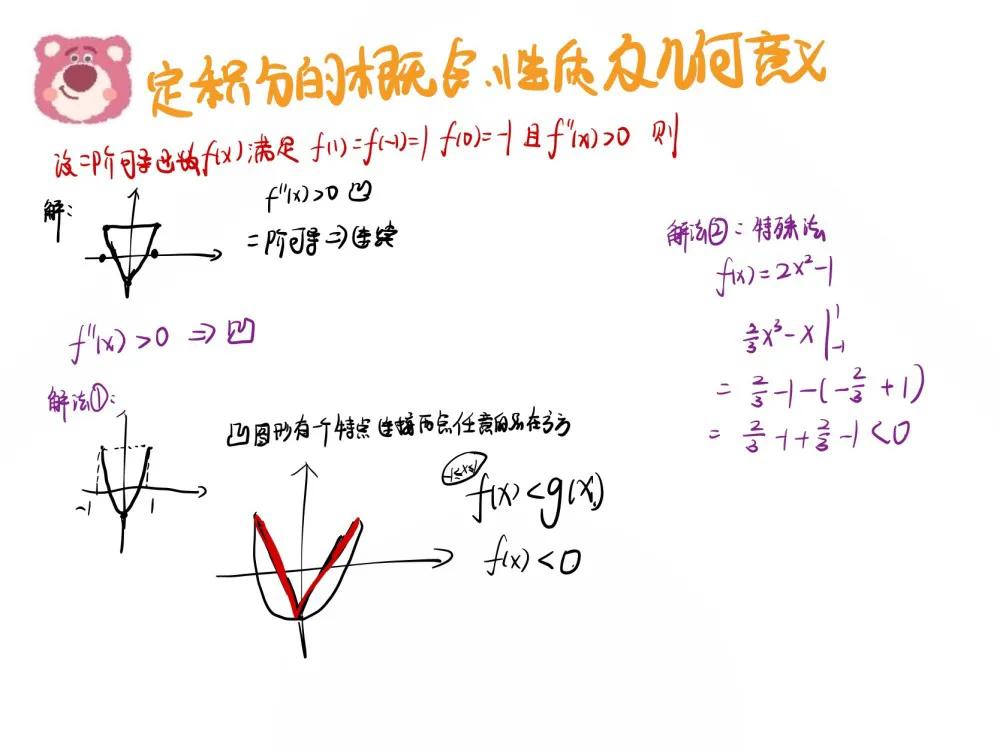 定积分的概念、性质及几何意义
设二阶可导函数f(x)满足 f(1)=f(-1)=1 f(0)=-1 且f''(x)>0 则
解:
f''(x)>0 凹
二阶可导⇒连续
f''(x)>0 ⇒凹
解法①:
-1 1
凹图形有个特点 连接两点任意的另在方方
-1≤x≤1
f(x)<g(x)
f(x)<0
解法②:特殊法
f(x)=2x²-1
2/3x³-x|¹₋₁
=2/3-1-(-2/3+1)
=2/3-1+2/3-1<0